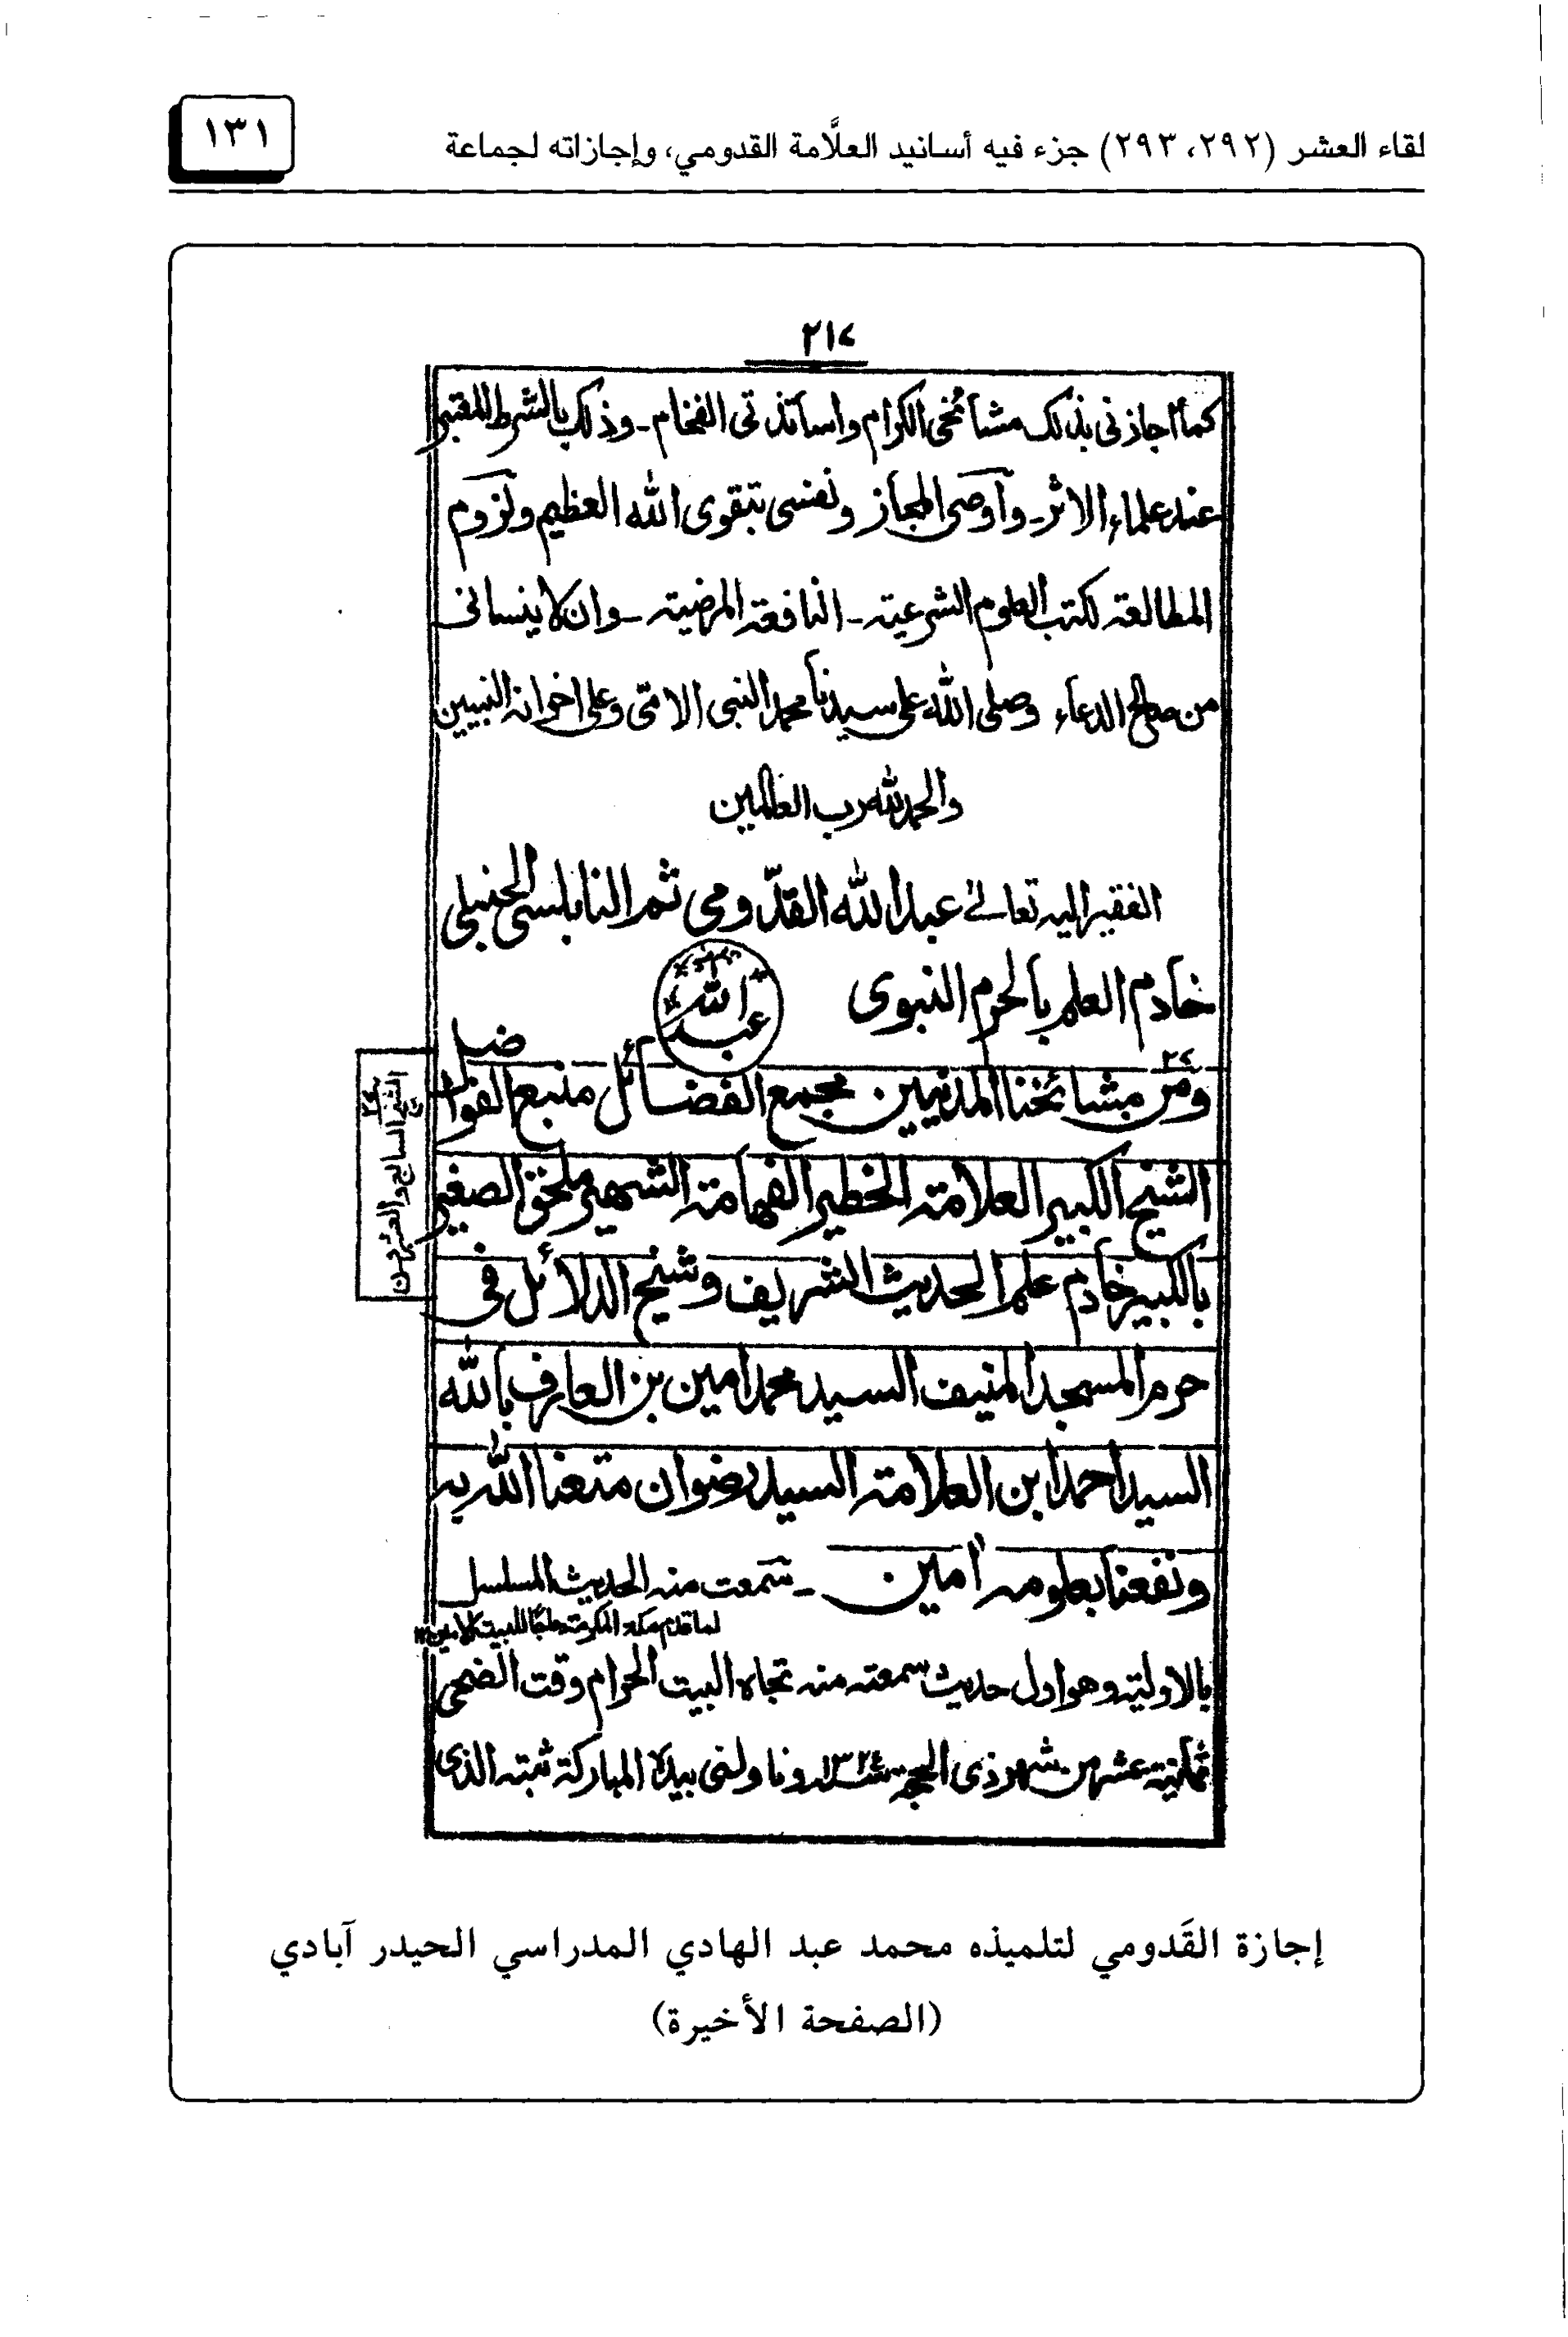 لقاء العشر (٢٩٢، ٢٩٣) جزء فيه أسانيد العلَّامة القدومي، وإجازاته لجماعة
١٣١
٢١٧
كما اجازنى بذلك مشائخى الكرام واساتذتى الفخام ـ وذلك بالشرط المعتبر
عند علماء الاثر ـ وأوصى المجاز ونفسى بتقوى الله العظيم ولزوم
المطالعة لكتب العلوم الشرعية ـ النافعة المرضية ـ وان لا ينسانى
من صالح الدعاء وصلى الله على سيدنا محمد النبى الامى وعلى اخوانه النبيين
والحمد لله رب العالمين
الفقير اليه تعالى عبد الله القدّومى ثم النابلسى الحنبلى
خادم العلم بالحرم النبوى
عبد الله
٢٧
ومن مشائخنا المدنيين مجمع الفضائل منبع الفواضل
الشيخ السابع والعشرون
٢٧
الشيخ الكبير العلامة الخطير الفهامة الشهير ملحق الصغير
بالكبير خادم علم الحديث الشريف وشيخ الدلائل فى
حرم المسجد المنيف السيد محمد امين بن العارف بالله
السيد احمد ابن العلامة السيد رضوان متعنا الله به
ونفعنا بعلومه أمين ـ سمعت منه الحديث المسلسل
لما قدم مكة المكرمة حاجًا للبيت الامين ١٢
بالاولية وهو اول حديث سمعته منه تجاه البيت الحرام وقت الضحى
ثمانية عشر من شهر ذى الحجة سنة ١٣٢٤ وناولنى بيده المباركة ثبته الذى
إجازة القَدومي لتلميذه محمد عبد الهادي المدراسي الحيدر آبادي
(الصفحة الأخيرة)